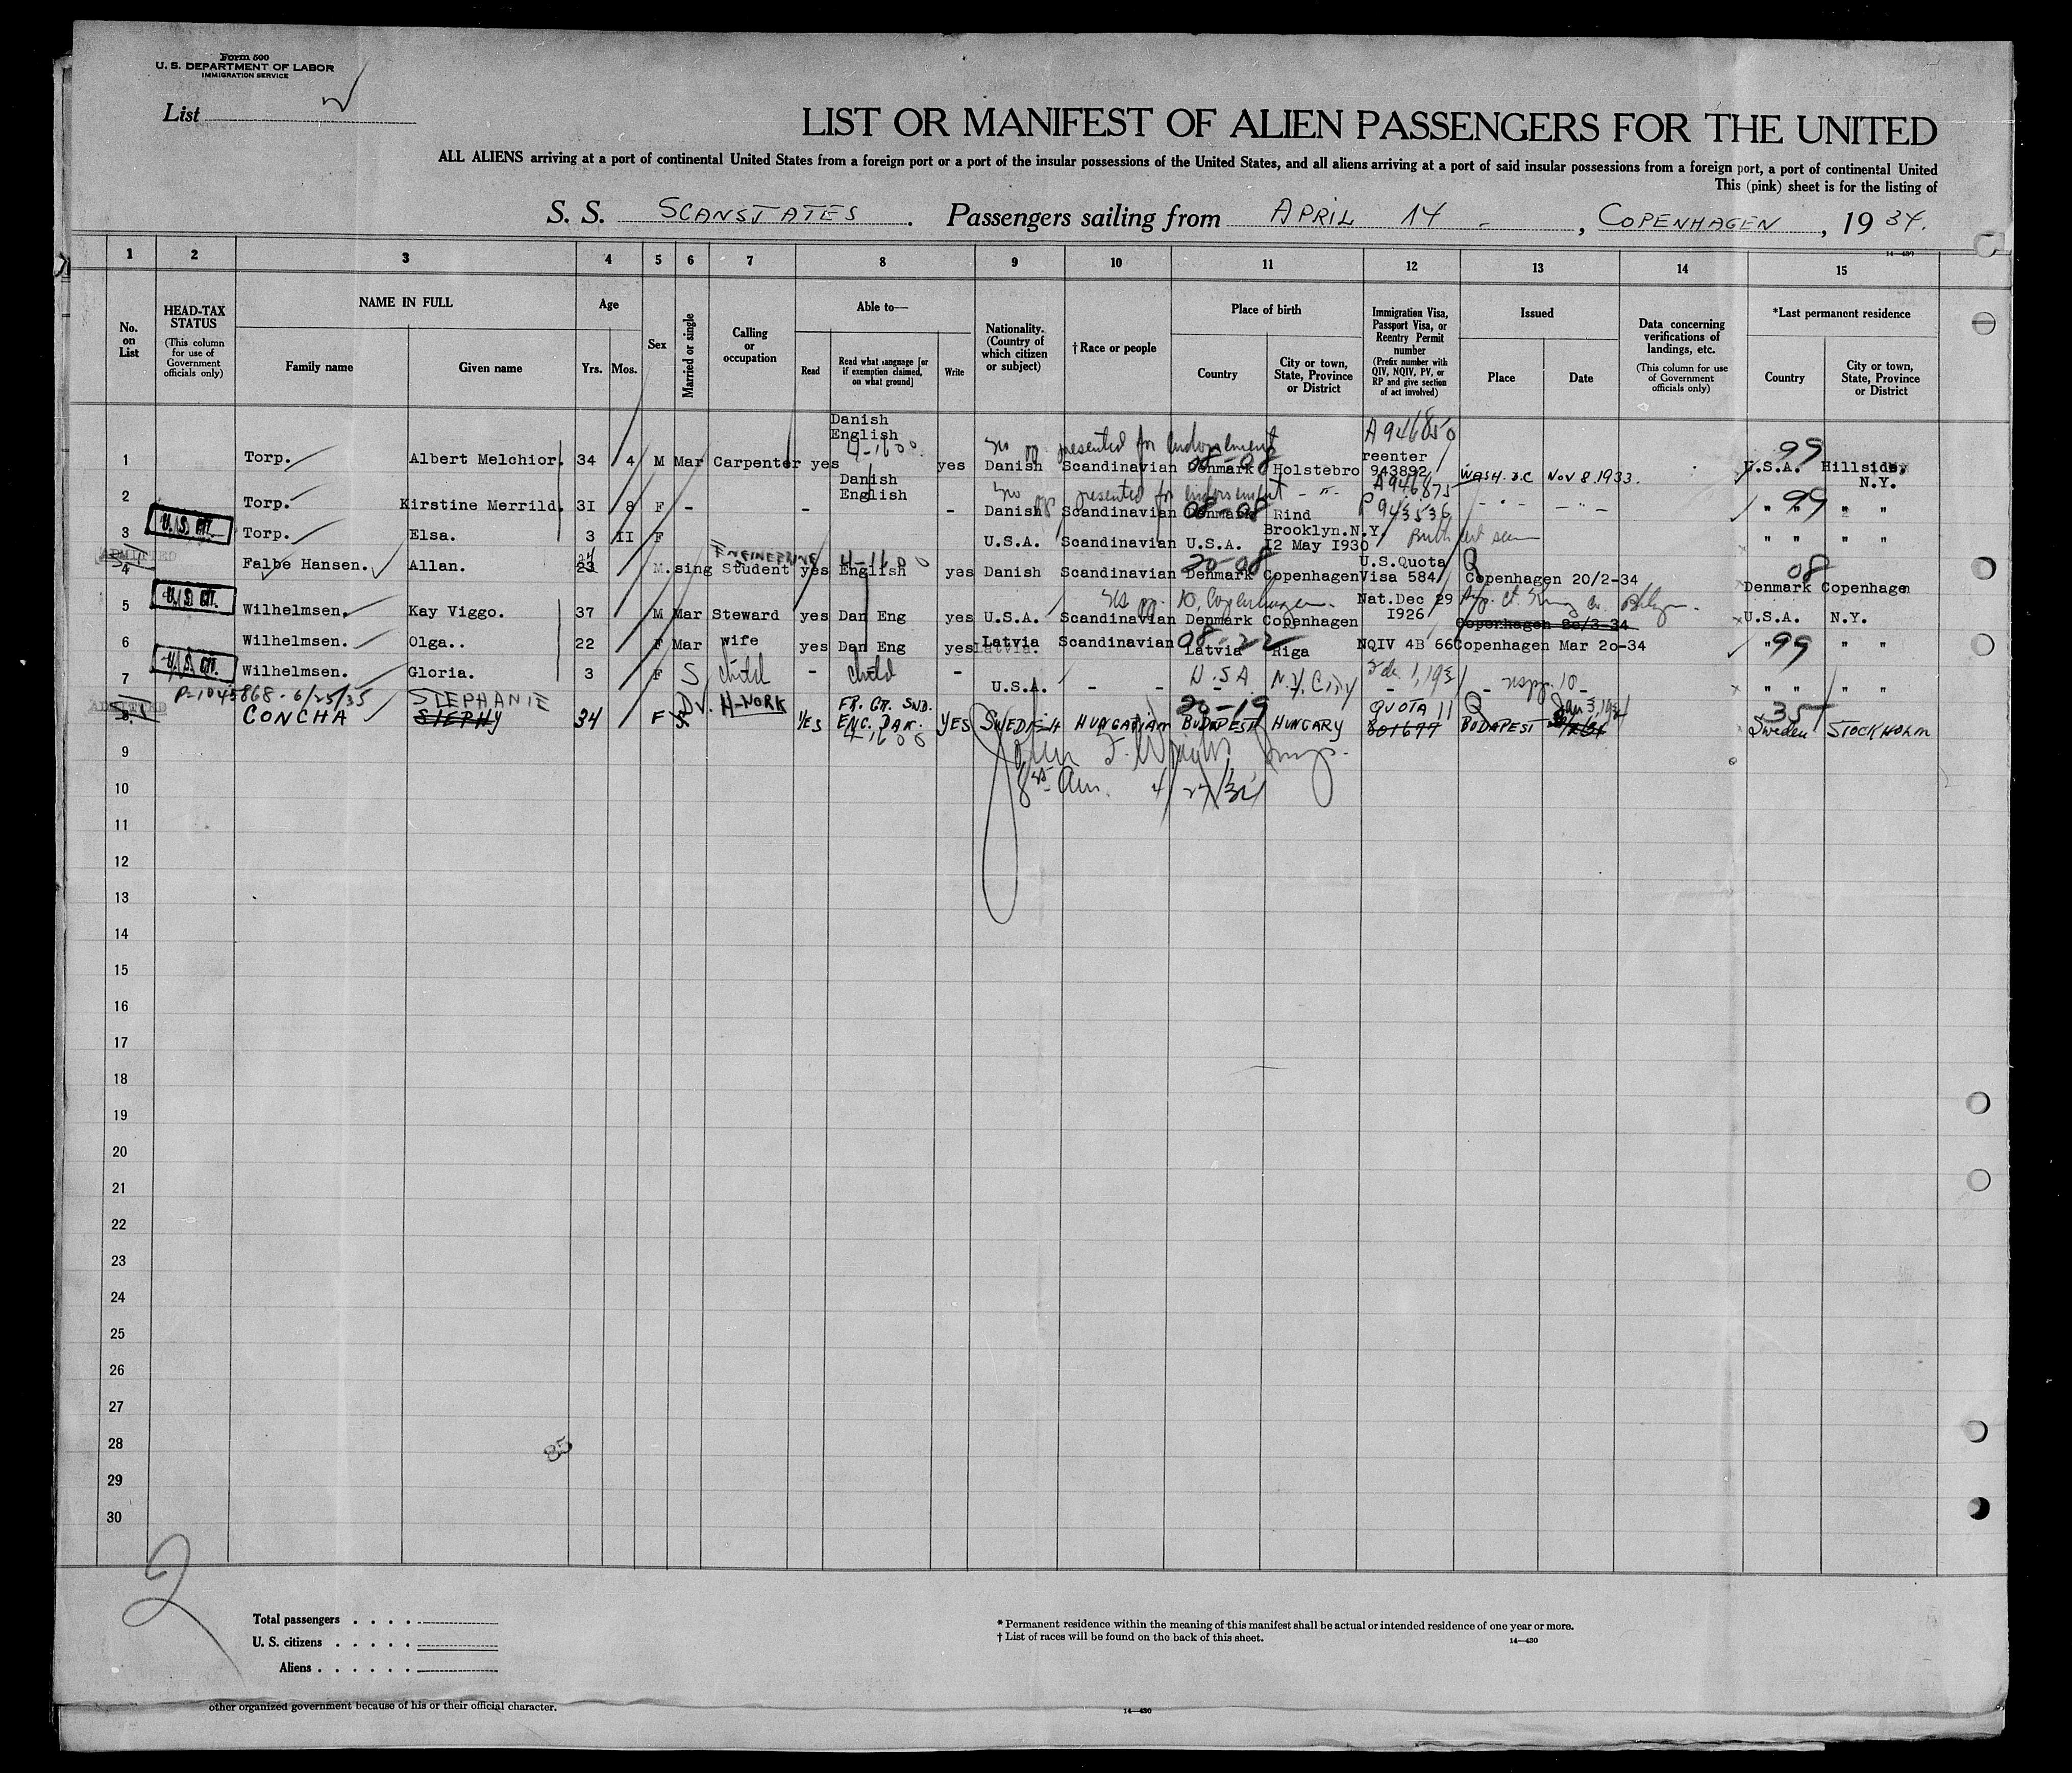 Form 500
U. S. DEPARTMENT OF LABOR
IMMIGRATION SERVICE
List
LIST OR MANIFEST OF ALIEN PASSENGERS FOR THE UNITED
ALL ALIENS arriving at a port of continental United States from a foreign port or a port of the insular possessions of the United States, and all aliens arriving at a port of said insular possessions from a foreign port, a port of continental United
This (pink) sheet is for the listing of
S. S. SCANSTATES. Passengers sailing from APRIL 14 - , COPENHAGEN , 19 34.
14—430
1 2 3 4 5 6 7 8 9 10 11 12 13 14 15
No. on List
HEAD-TAX STATUS
(This column for use of Government officials only)
NAME IN FULL
Family name
Given name
Age
Yrs. Mos.
Sex
Married or single
Calling or occupation
Able to—
Read
Read what language [or if exemption claimed, on what ground]
Write
Nationality. (Country of which citizen or subject)
†Race or people
Place of birth
Country
City or town, State, Province or District
Immigration Visa, Passport Visa, or Reentry Permit number
(Prefix number with QIV, NQIV, PV, or RP and give section of act involved)
Issued
Place
Date
Data concerning verifications of landings, etc.
(This column for use of Government officials only)
*Last permanent residence
Country
City or town, State, Province or District
Danish
English
4-1600
presented for endorsement
A 946850
1 Torp. Albert Melchior. 34 4 M Mar Carpenter yes yes Danish Scandinavian Denmark 08-08 Holstebro reenter 943892 WASH. D.C Nov 8.1933. 99 U.S.A. Hillside, N.Y.
Danish
English
presented for endorsement - " -
A 946875
2 Torp. Kirstine Merrild. 3I 8 F - - - Danish Scandinavian Denmark 08-08 Rind P 943536 - " - - " - 99 " " " "
U.S. CIT.
3 Torp. Elsa. 3 II F U.S.A. Scandinavian U.S.A. Brooklyn.N.Y. I2 May I930 Birth cert seen " " " "
ADMITTED
4 Falbe Hansen. Allan. 24 23 M. sing ENGINEERING Student yes English 4-1600 yes Danish Scandinavian Denmark 20-08 Copenhagen U.S.Quota Visa 584 Q Copenhagen 20/2-34 08 Denmark Copenhagen
U.S. CIT.
10, Copenhagen.
5 Wilhelmsen. Kay Viggo. 37 M Mar Steward yes Dan Eng yes U.S.A. Scandinavian Denmark Copenhagen Nat.Dec 29 I926 Copenhagen 20/3-34 U.S.A. N.Y.
6 Wilhelmsen. Olga.. 22 F Mar wife yes Dan Eng yes Latvia Latvia. Scandinavian 08-22 Latvia Riga NQIV 4B 66 Copenhagen Mar 2o-34 99 " " " "
U.S. CIT.
7 Wilhelmsen. Gloria. 3 F S child - child - U.S.A. - - U.S.A N.Y. City 1, 1931 10 " " " "
P-1045868 - 6/25/35
ADMITTED
8 CONCHA STEPHANIE STEPHY 34 F S. DV. H-WORK YES FR. GR. SWD. ENG. DAN. 4-1600 YES SWEDISH HUNGARIAN 20-19 BUDAPEST HUNGARY QUOTA 11 801677 Q BUDAPEST Jan 3, 1934 35 Sweden STOCKHOLM
9
10
4/27/34
11
12
13
14
15
16
17
18
19
20
21
22
23
24
25
26
27
28
85
29
30
2
Total passengers
U. S. citizens
Aliens
* Permanent residence within the meaning of this manifest shall be actual or intended residence of one year or more.
† List of races will be found on the back of this sheet.
14—430
other organized government because of his or their official character.
14—430